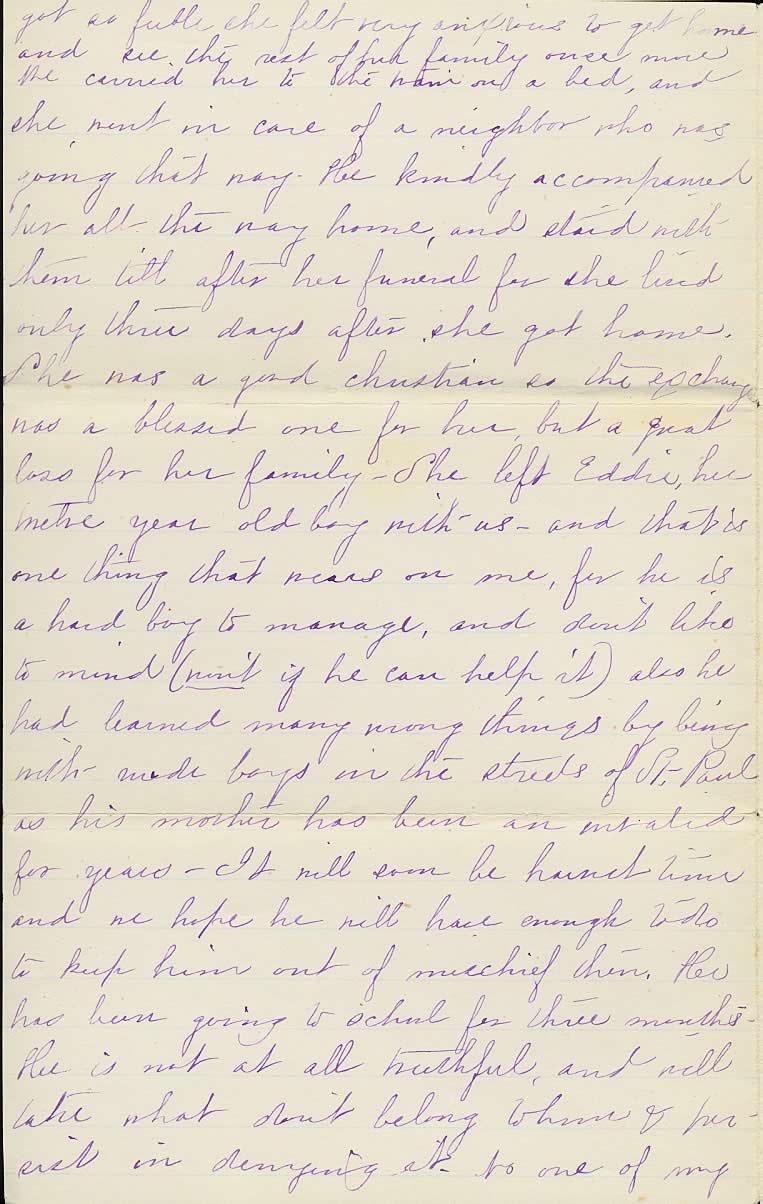 got so feeble she felt very anxious to get home
and see the rest of her family once more
We carried her to the train on a bed, and
she went in care of a neighbor who was
going that way. He kindly accompanied
her all the way home, and staid with
them till after her funeral for she lived
only three days after she got home.
She was a good christian so the exchange
was a blessed one for her, but a great
loss for her family - She left Eddie, her
twelve year old boy with us - and that is
one thing that wears on me, for he is
a hard boy to manage, and don't like
to mind (won't if he can help it) also he
had learned many wrong things by being
with rude boys in the streets of St. Paul
as his mother has been an invalid
for years - It will soon be harvest time
and we hope he will have enough to do
to keep him out of mischief then. He
has been going to school for three months -
He is not at all truthful, and will
take what don't belong to him & per-
sist in denying it - to one of my